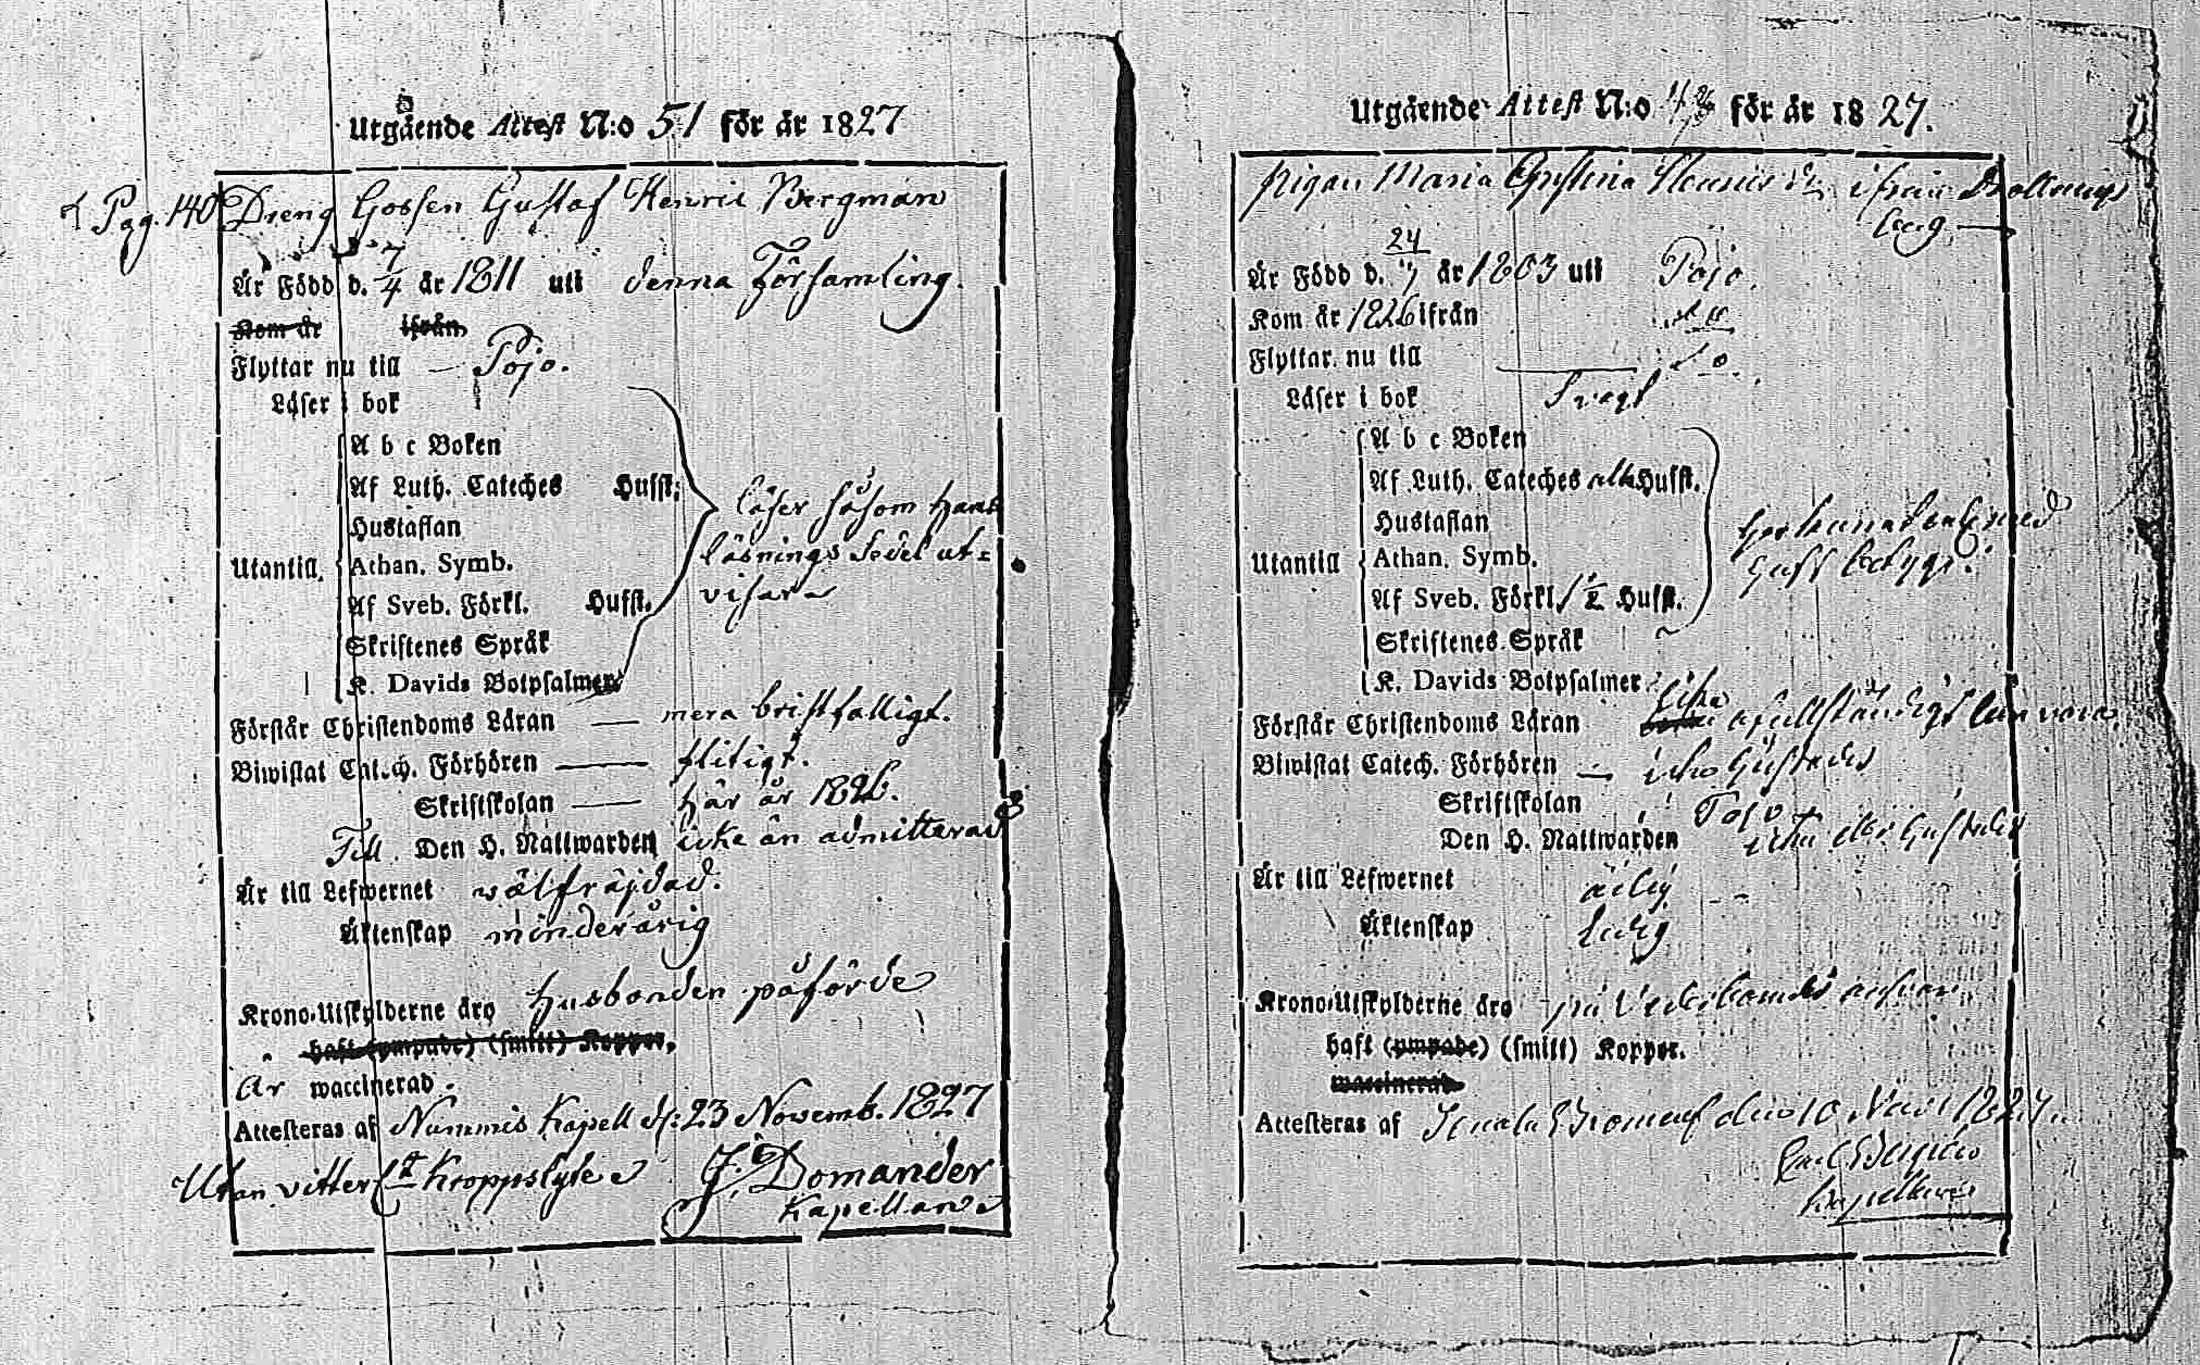 Utgående Attest N:o 51 för år 1827
Pag. 140
Dreng Gossen Gustaf Henric Bergman
Är Född d. 7/4 år 1811 uti denna Församling.
Kom år ifrån
Flyttar nu till — Pojo.
Läser i bok
A b c Boken
Af Luth. Cateches Hufst.
Hustaflan
Utantill Athan. Symb.
Af Sveb. Förkl. Hufst.
Skriftenes Språk
K. Davids Botpsalmer
läser såsom Hans
läsnings Sedel ut-
visar
Förstår Christendoms Läran — mera bristfälligt.
Biwistat Catech. Förhören — flitigt.
Skriftskolan — här år 1826.
Till Den H. Nattwarden icke än admitterad
Är till Lefwernet wälfräjdad.
Äktenskap minderårig
Krono-Utskylderne äro Husbonden påförde
haft (ympade) (smitt) Koppor.
Är waccinerad.
Attesteras af Nummis Kapell d: 23 Novemb. 1827
Utan vitterl:t Kroppslyte J. Domander
Kapellan
Utgående Attest N:o för år 1827.
Pigan Maria ifrån
berg —
Är Född d. 24/ år 1803 uti Pojo.
Kom år 1826 ifrån
Flyttar nu till
Läser i bok Svagt
A b c Boken
Af Luth. Cateches alla Hufst.
Hustaflan
Utantill Athan. Symb.
Af Sveb. Förkl. Hufst.
Skriftenes Språk
K. Davids Botpsalmer
Förstår Christendoms Läran
Biwistat Catech. Förhören —
Skriftskolan Pojo
Den H. Nattwarden
Är till Lefwernet ärlig
Äktenskap Ledig
Krono-Utskylderne äro på ansvar
haft (ympade) (smitt) Koppor.
waccinerad
Attesteras af den 10 1827
Carl
Kapellan